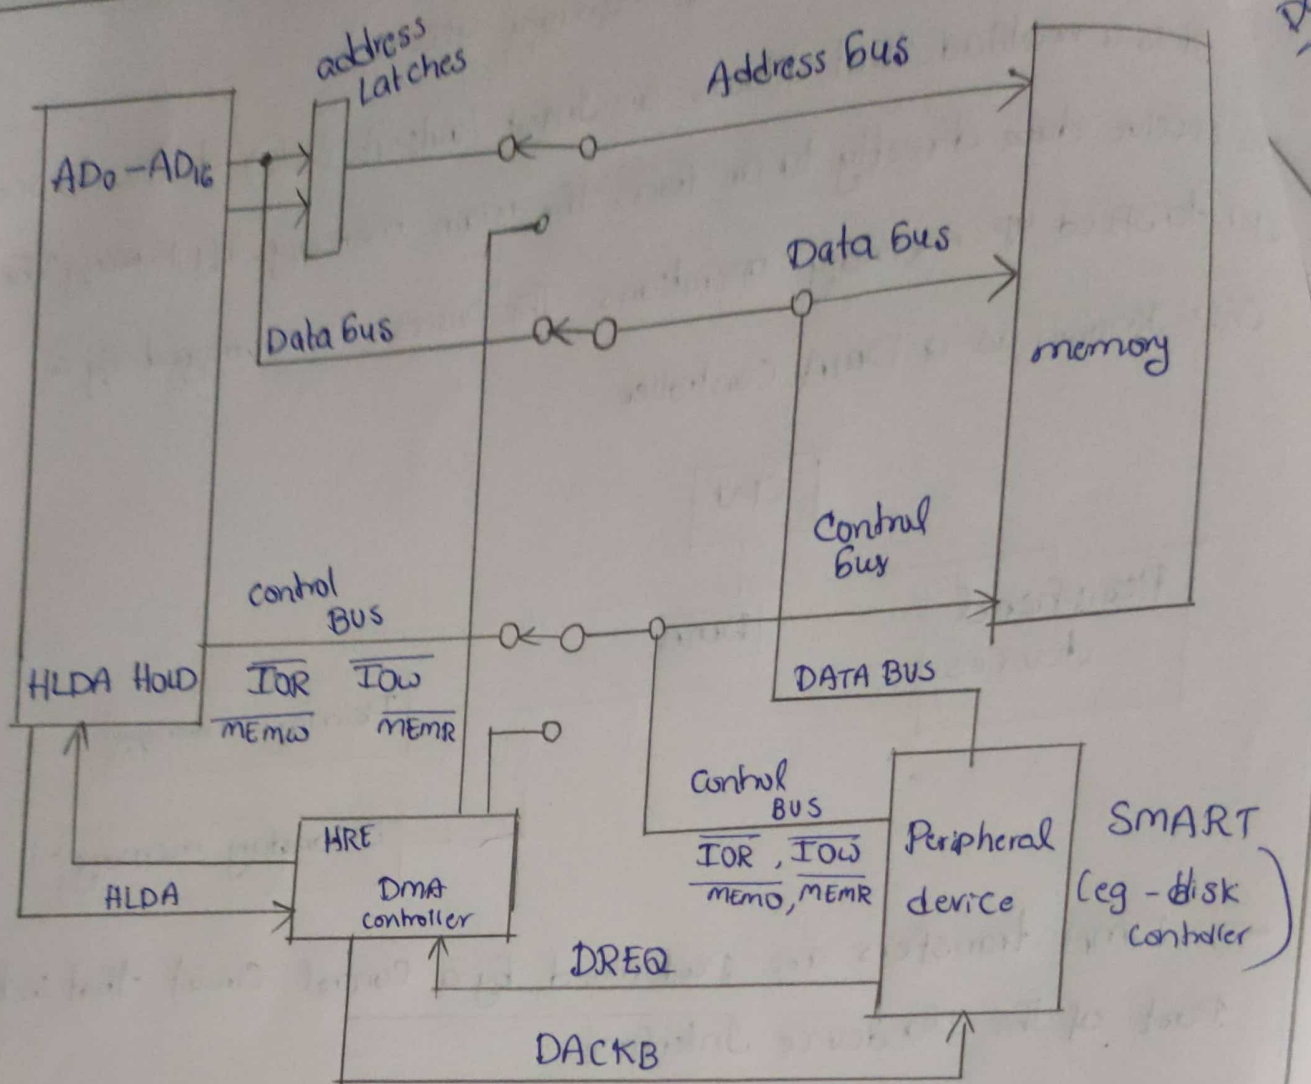 address
Latches
Address bus
AD0-AD16
Data bus
Data bus
memory
Control
bus
control
BUS
HLDA HOLD
I̅O̅R̅ I̅O̅W̅
M̅E̅M̅W̅ M̅E̅M̅R̅
DATA BUS
Control
BUS
I̅O̅R̅, I̅O̅W̅
M̅E̅M̅O̅, M̅E̅M̅R̅
HRE
DMA
controller
HLDA
Peripheral
device
SMART
(eg - disk
controller)
DREQ
DACKB